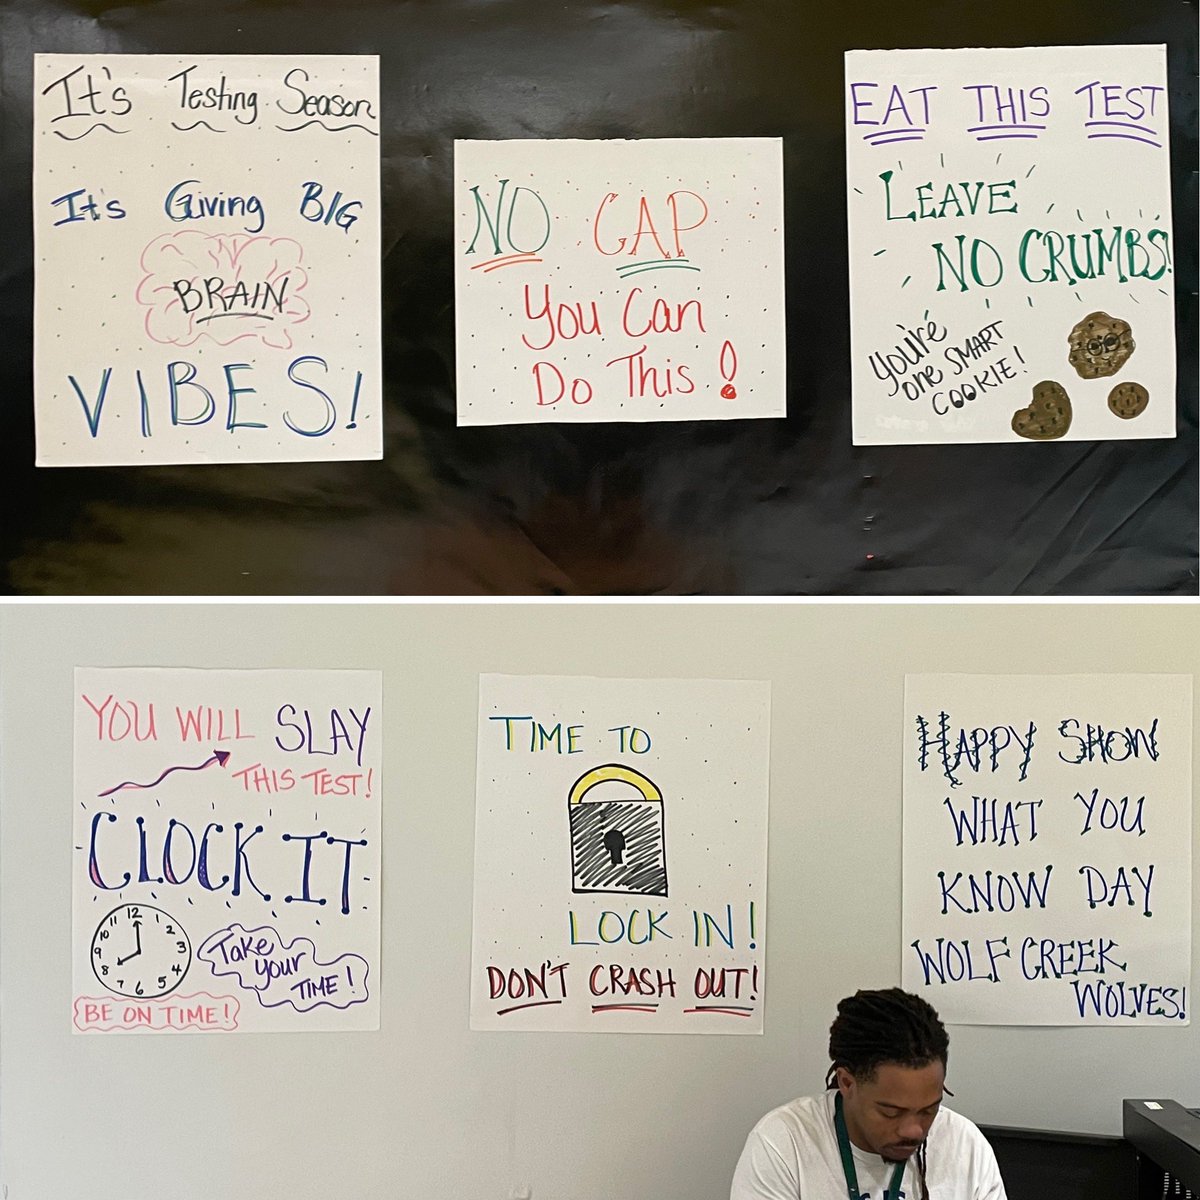 It's Testing Season
It's Giving BIG
BRAIN
VIBES!
NO CAP
You Can
Do This!
EAT THIS TEST
LEAVE
NO CRUMBS!
You're
one SMART
COOKIE!
YOU WILL SLAY
THIS TEST!
CLOCK IT
12
1
2
3
4
5
6
7
8
9
10
11
Take
your
TIME!
BE ON TIME!
TIME TO
LOCK IN!
DON'T CRASH OUT!
HAPPY SHOW
WHAT YOU
KNOW DAY
WOLF CREEK
WOLVES!